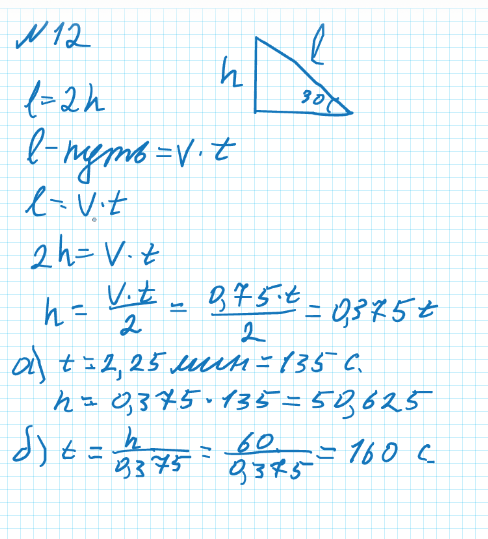 № 12
h
l
30
l = 2h
l - путь = V · t
l = V · t
2h = V · t
h = V · t / 2 = 0,75 · t / 2 = 0,375 t
а) t = 2,25 мин = 135 с.
h = 0,375 · 135 = 50,625
б) t = h / 0,375 = 60 / 0,375 = 160 с